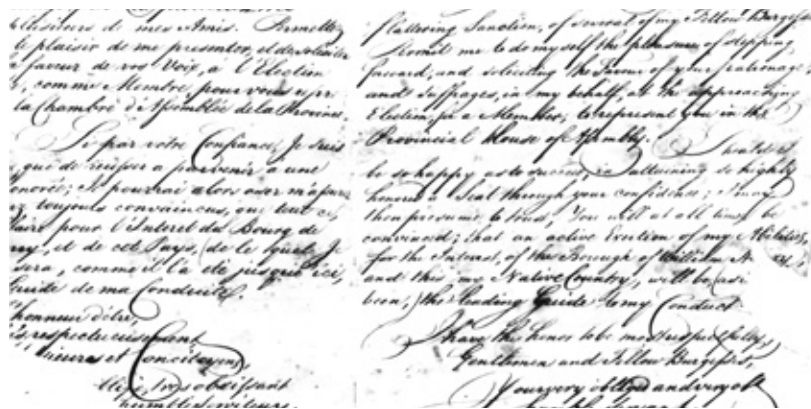 plusieurs de mes Amis. Permettez
le plaisir de me presenter, et de soliciter
faveur de vos Voix, a l'Election
, comme Membre, pour vous
la Chambre d'Assemblée de la Province.
Si par votre Confiance, Je suis
que de reussir a parvenir a une
honorée; Je pourrai alors oser m'assurer
toujours convaincus, que tout ce
faire pour l'Interet du Bourg de
ry, et de cet Pays, de le quel Je
sera, comme il l'a eté jusqu'ici,
Guide de ma Conduite.
honneur d'être,
respectueusement
sieurs et Concitoyens,
tres obeissant
humble serviteur.
flattering Sanction, of several of my Fellow Burgesses
Permit me to do myself the pleasure of stepping
forward, and soliciting the Favour of your patronage
and Suffrages, in my behalf, at the approaching
Election, for a Member, to represent you in the
Provincial House of Assembly.
Should I
be so happy as to succeed, in attaining so highly
honored a Seat through your confidence; I may
then presume to trust, You will at all times be
convinced; that an active Exertion of my Abilities,
for the Interest, of the Borough of William H
and this my Native Country, will be, (as
been,) the leading Guide to my Conduct.
I have the honor to be most respectfully,
Gentlemen and Fellow Burgesses,
Your very obliged and very